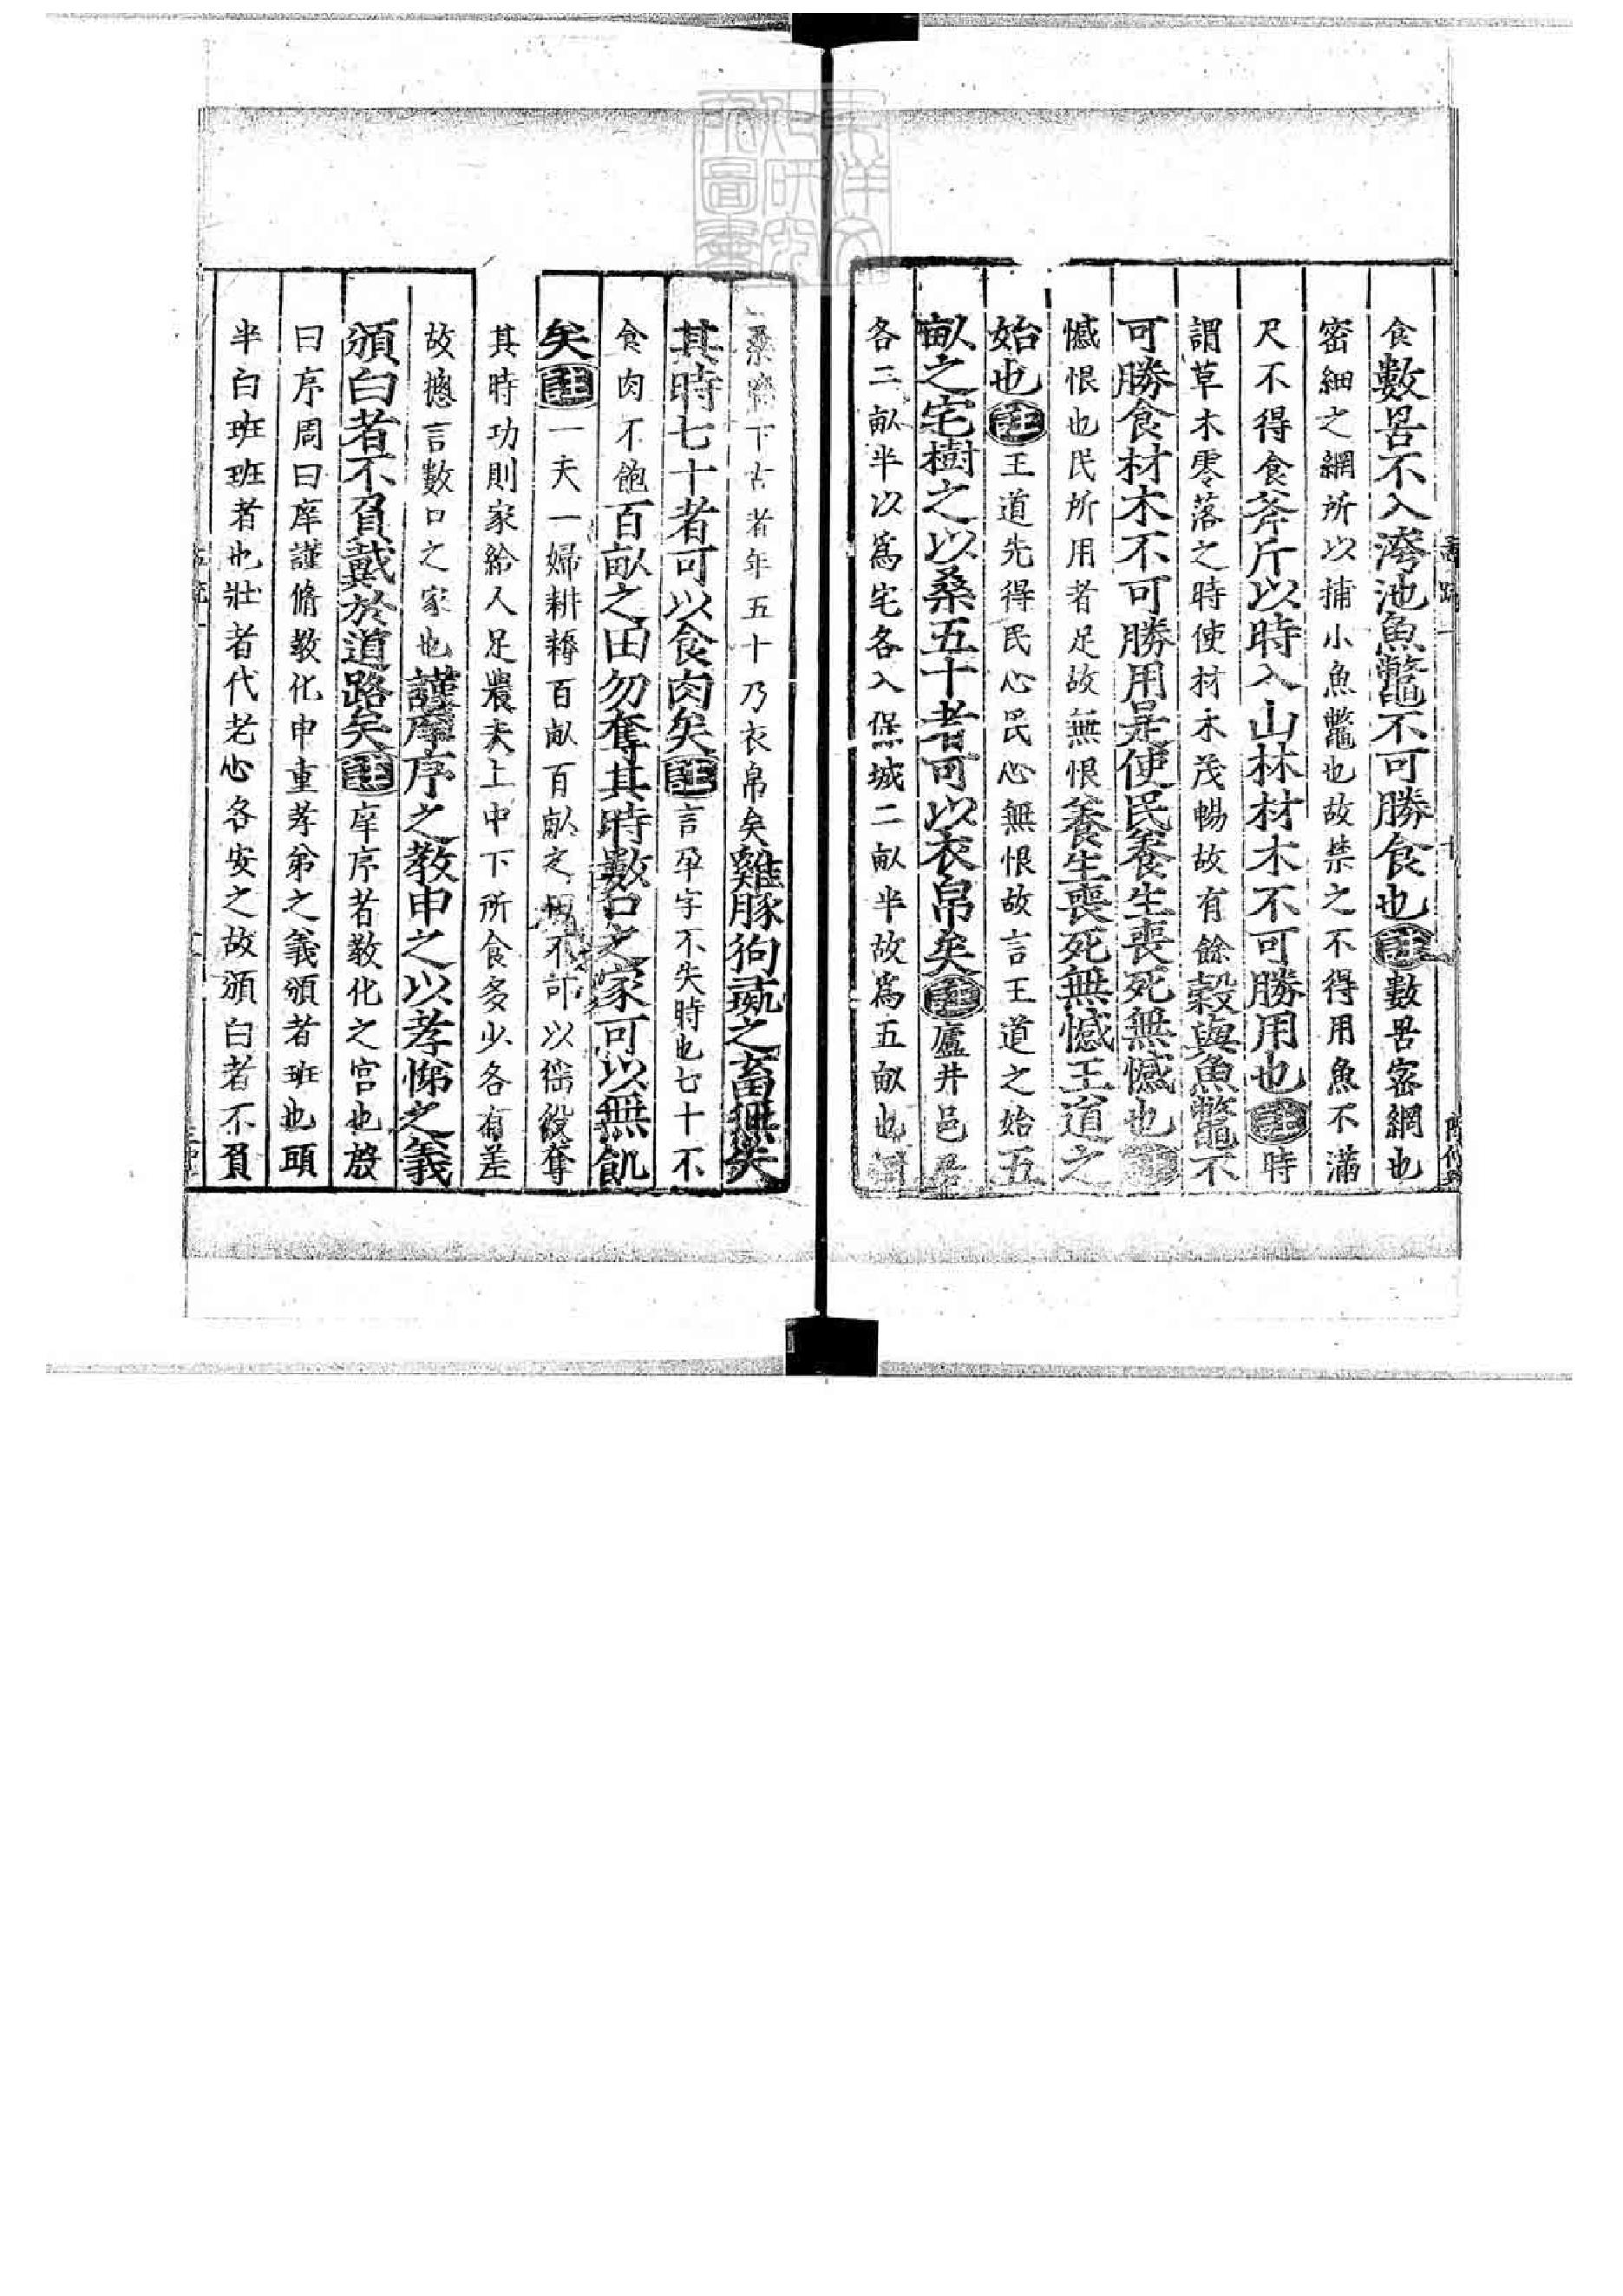 食數罟不入洿池魚鼈不可勝食也註數罟密網也
密細之網所以捕小魚鼈也故禁之不得用魚不滿
尺不得食斧斤以時入山林材木不可勝用也註時
謂草木零落之時使材木茂暢故有餘穀與魚鼈不
可勝食材木不可勝用是使民養生喪死無憾也註
憾恨也民所用者足故無恨養生喪死無憾王道之
始也註王道先得民心民心無恨故言王道之始五
畝之宅樹之以桑五十者可以衣帛矣註廬井邑居
各二畝半以爲宅各入保城二畝半故爲五畝也
桑下古者年五十乃衣帛矣雞豚狗彘之畜無失
其時七十者可以食肉矣註言孕字不失時也七十不
食肉不飽百畝之田勿奪其時數口之家可以無飢
矣註一夫一婦耕耨百畝百畝之不以徭役奪
其時功則家給人足農夫上中下所食多少各有差
故摠言數口之家也謹庠序之教申之以孝悌之義
頒白者不負戴於道路矣註庠序者教化之宫也殷
曰序周曰庠謹脩教化申重孝弟之義頒者班也頭
半白班班者也壯者代老心各安之故頒白者不負